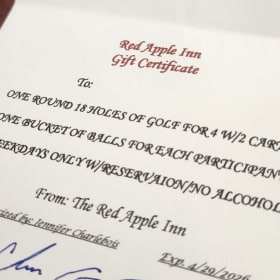 Red Apple Inn
Gift Certificate
To:
ONE ROUND 18 HOLES OF GOLF FOR 4 W/2 CAR
ONE BUCKET OF BALLS FOR EACH PARTICIPAN
EEKDAYS ONLY W/RESERVAION/NO ALCOHOL
From: The Red Apple Inn
rized by: Jennifer Charlebois
Exp. 4/29/2026